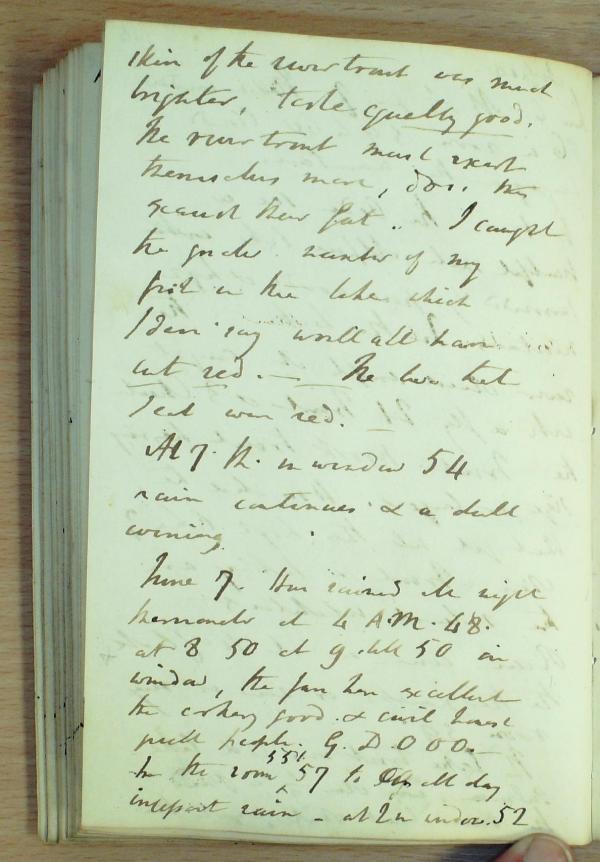 skin of the river trout was much
brighter, taste equally good.
The river trout must exert
themselves more, & so
exaust their fat .. I caught
the greater number of my
fish in the lake which
I dare say would all have
cut red. — The two that
I eat were red. —
At 7 th. in window 54
rain continues & a dull
evening
June 7. Has rained all night
thermometer at 4 A.M. 48.
at 8 50 at 9 50 in
window, the fare here excellent
the cookery good & civil honest
people. G. D. 0 0 0. —
In the room 55½ 57 to all day
incessant rain — at 2 in window. 52